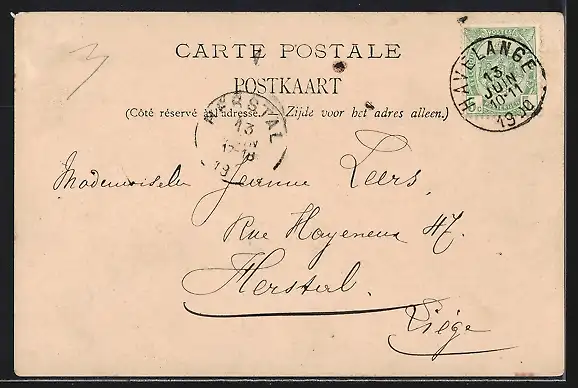 CARTE POSTALE
POSTKAART
(Côté réservé à l'adresse. Zijde voor het adres alleen.)
HAVELANGE
13
JUIN
10-11
1900
HERSTAL
13
Mademoiselle Jeanne Leers,
Rue Hayeneux 47.
Herstal.
Liége